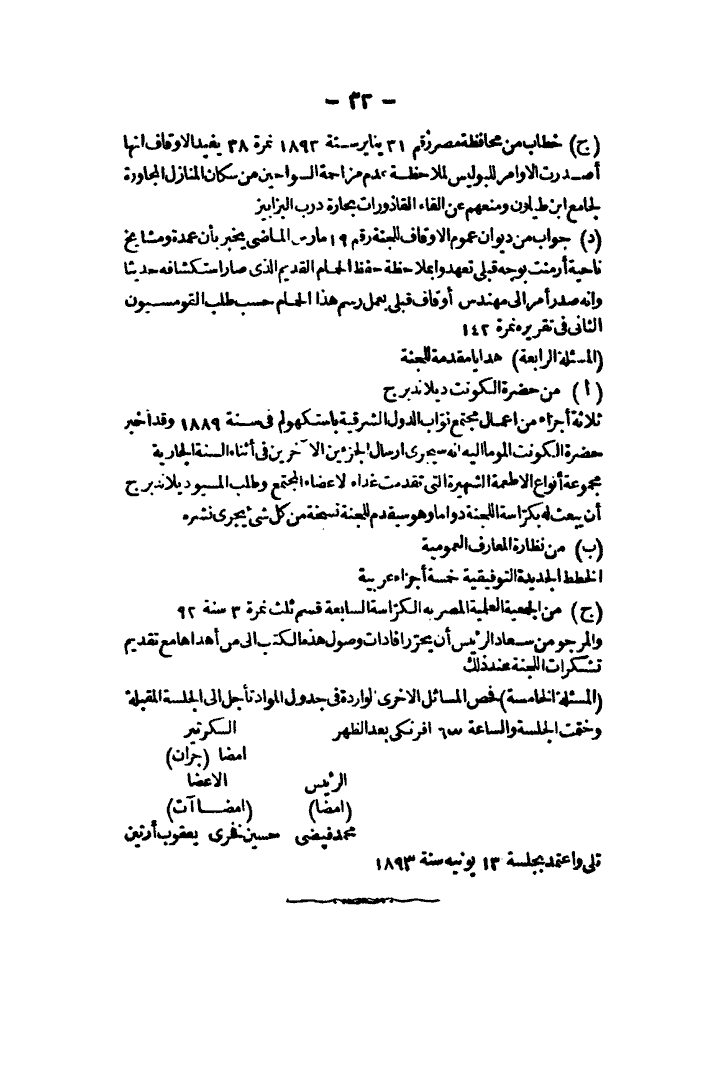 - ٣٢ -
(ج) خطاب من محافظة مصر رقم ٣١ يناير سنة ١٨٩٣ نمرة ٣٨ يفيد الاوقاف انها
أصدرت الاوامر للبوليس لملاحظة عدم مزاحمة السواحين من سكان المنازل المجاورة
لجامع ابن طيلون ومنعهم عن القاء القاذورات بحارة درب البزابيز
(د) جواب من ديوان عموم الاوقاف للجنة رقم ١٩ مارس الماضى يخبر بأن عمدة ومشايخ
ناحية أرمنت بوجه قبلى تعهدوا بملاحظة حفظ الحمام القديم الذى صار استكشافه حديثا
وانه صدر أمر الى مهندس أوقاف قبلى بعمل رسم هذا الحمام حسب طلب القومسيون
الثانى فى تقريره نمرة ١٤٢
(المسئلة الرابعة) هدايا مقدمة للجنة
(أ) من حضرة الكونت ديلاندبرج
ثلاثة أجزاء من اعمال مجتمع نواب الدول الشرقية باستكهولم فى سنة ١٨٨٩ وقد أخبر
حضرة الكونت الموما اليه انه سيجرى ارسال الجزئين الآخرين فى أثناء السنة الجارية
مجموعة أنواع الاطعمة الشهيرة التى تقدمت غداء لاعضاء المجتمع وطلب المسيو ديلاندبرج
أن يبعث له بكراسة اللجنة دواما وهو سيقدم للجنة نسخة من كل شئ يجرى نشره
(ب) من نظارة المعارف العمومية
الخطط الجديدة التوفيقية خمسة أجزاء عربية
(ج) من الجمعية العلمية المصريه الكراسة السابعة قسم ثلث نمرة ٣ سنة ٩٢
والمرجو من سعاد الرئيس أن يحرر افادات وصول هذه الكتب الى من أهداها مع تقديم
تشكرات اللجنة عند ذلك
(المسئلة الخامسة) فحص المسائل الاخرى الواردة فى جدول المواد تأجل الى الجلسة المقبلة
وختمت الجلسة والساعة افرنكى بعد الظهر السكرتير
امضا (جران)
الرئيس الاعضا
(امضا) (امضاآت)
محمد فيضى حسين فخرى يعقوب أرتين
تلى واعتمد بجلسة ١٣ يونيه سنة ١٨٩٣